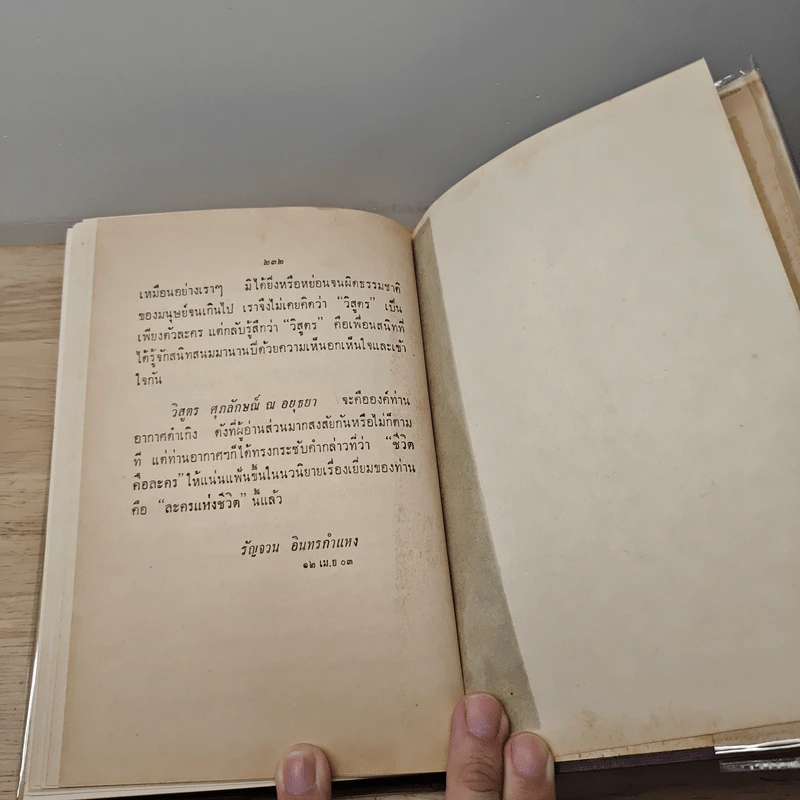 ๒๓๒
เหมือนอย่างเราๆ มิได้ยิ่งหรือหย่อนจนผิดธรรมชาติ
ของมนุษย์จนเกินไป เราจึงไม่เคยคิดว่า “วิสูตร” เป็น
เพียงตัวละคร แต่กลับรู้สึกว่า “วิสูตร” คือเพื่อนสนิทที่
ได้รู้จักสนิทสนมมานานปีด้วยความเห็นอกเห็นใจและเข้า
ใจกัน
วิสูตร ศุภลักษณ์ ณ อยุธยา จะคือองค์ท่าน
อากาศดำเกิง ดังที่ผู้อ่านส่วนมากสงสัยกันหรือไม่ก็ตาม
ที แต่ท่านอากาศฯก็ได้ทรงกระชับคำกล่าวที่ว่า “ชีวิต
คือละคร” ให้แน่นแฟ้นขึ้นในนวนิยายเรื่องเยี่ยมของท่าน
คือ “ละครแห่งชีวิต” นี้แล้ว
รัญจวน อินทรกำแหง
๑๒ เม.ย ๐๓